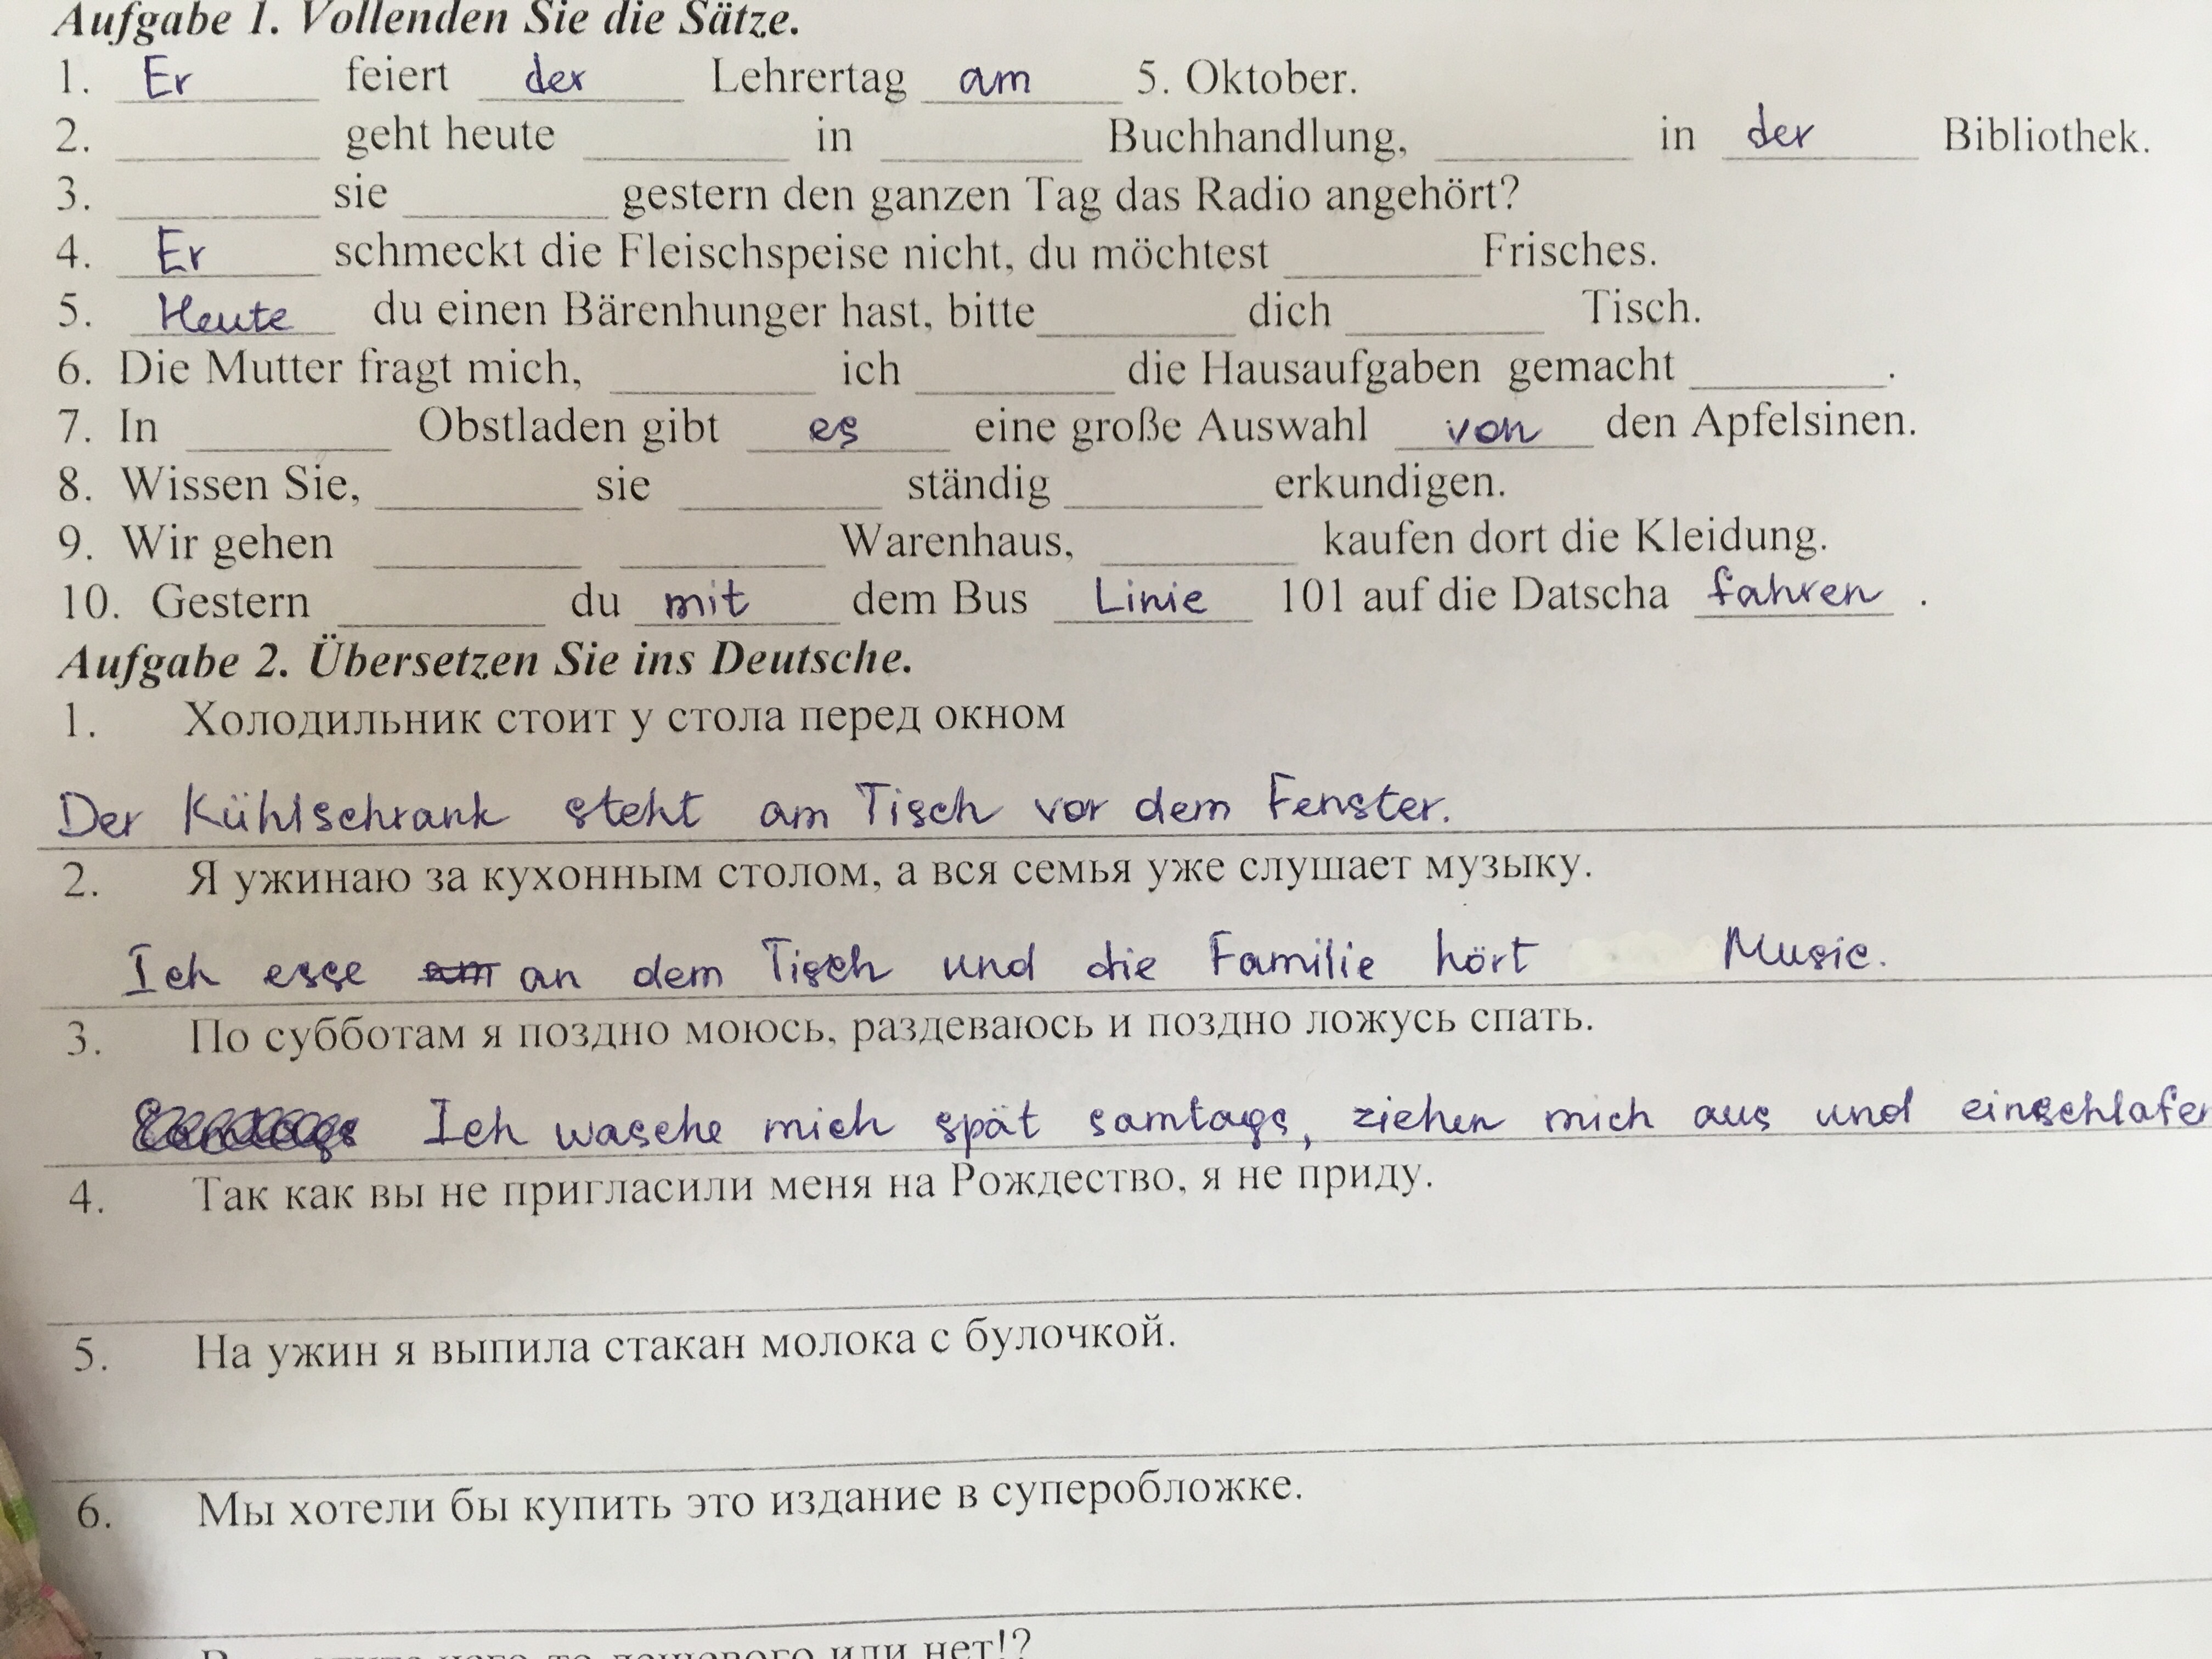 Aufgabe 1. Vollenden Sie die Sätze.
1. Er feiert der Lehrertag am 5. Oktober.
2. ____ geht heute ____ in ____ Buchhandlung, ____ in der Bibliothek.
3. ____ sie ____ gestern den ganzen Tag das Radio angehört?
4. Er schmeckt die Fleischspeise nicht, du möchtest ____ Frisches.
5. Heute du einen Bärenhunger hast, bitte ____ dich ____ Tisch.
6. Die Mutter fragt mich, ____ ich ____ die Hausaufgaben gemacht ____.
7. In ____ Obstladen gibt es eine große Auswahl von den Apfelsinen.
8. Wissen Sie, ____ sie ____ ständig ____ erkundigen.
9. Wir gehen ____ ____ Warenhaus, ____ kaufen dort die Kleidung.
10. Gestern ____ du mit dem Bus Linie 101 auf die Datscha fahren .
Aufgabe 2. Übersetzen Sie ins Deutsche.
1. Холодильник стоит у стола перед окном
Der Kühlschrank steht am Tisch vor dem Fenster.
2. Я ужинаю за кухонным столом, а вся семья уже слушает музыку.
Ich esse am an dem Tisch und die Familie hört Music.
3. По субботам я поздно моюсь, раздеваюсь и поздно ложусь спать.
Ich wasche mich spät samtags, ziehen mich aus und einschlafen
4. Так как вы не пригласили меня на Рождество, я не приду.
5. На ужин я выпила стакан молока с булочкой.
6. Мы хотели бы купить это издание в суперобложке.
или нет!?